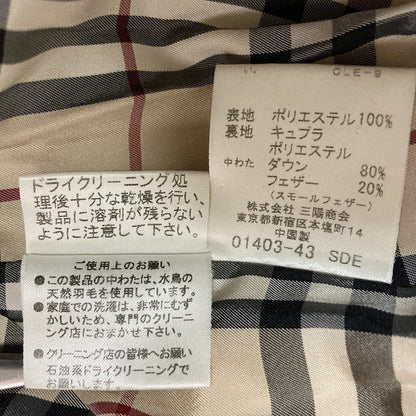 い。 CLE-9
表地 ポリエステル100%
裏地 キュプラ
ポリエステル
中わた ダウン 80%
フェザー 20%
(スモールフェザー)
株式会社 三陽商会
東京都新宿区本塩町14
中国製
01403-43 SDE
ドライクリーニング処
理後十分な乾燥を行い、
製品に溶剤が残らない
ように注意して下さい。
ご使用上のお願い
●この製品の中わたは、水鳥の
天然羽毛を使用しています。
●家庭での洗濯は、非常にむず
かしいため、専門のクリーニン
グ店におまかせ下さい。
●クリーニング店の皆様へお願い
石油系ドライクリーニングで